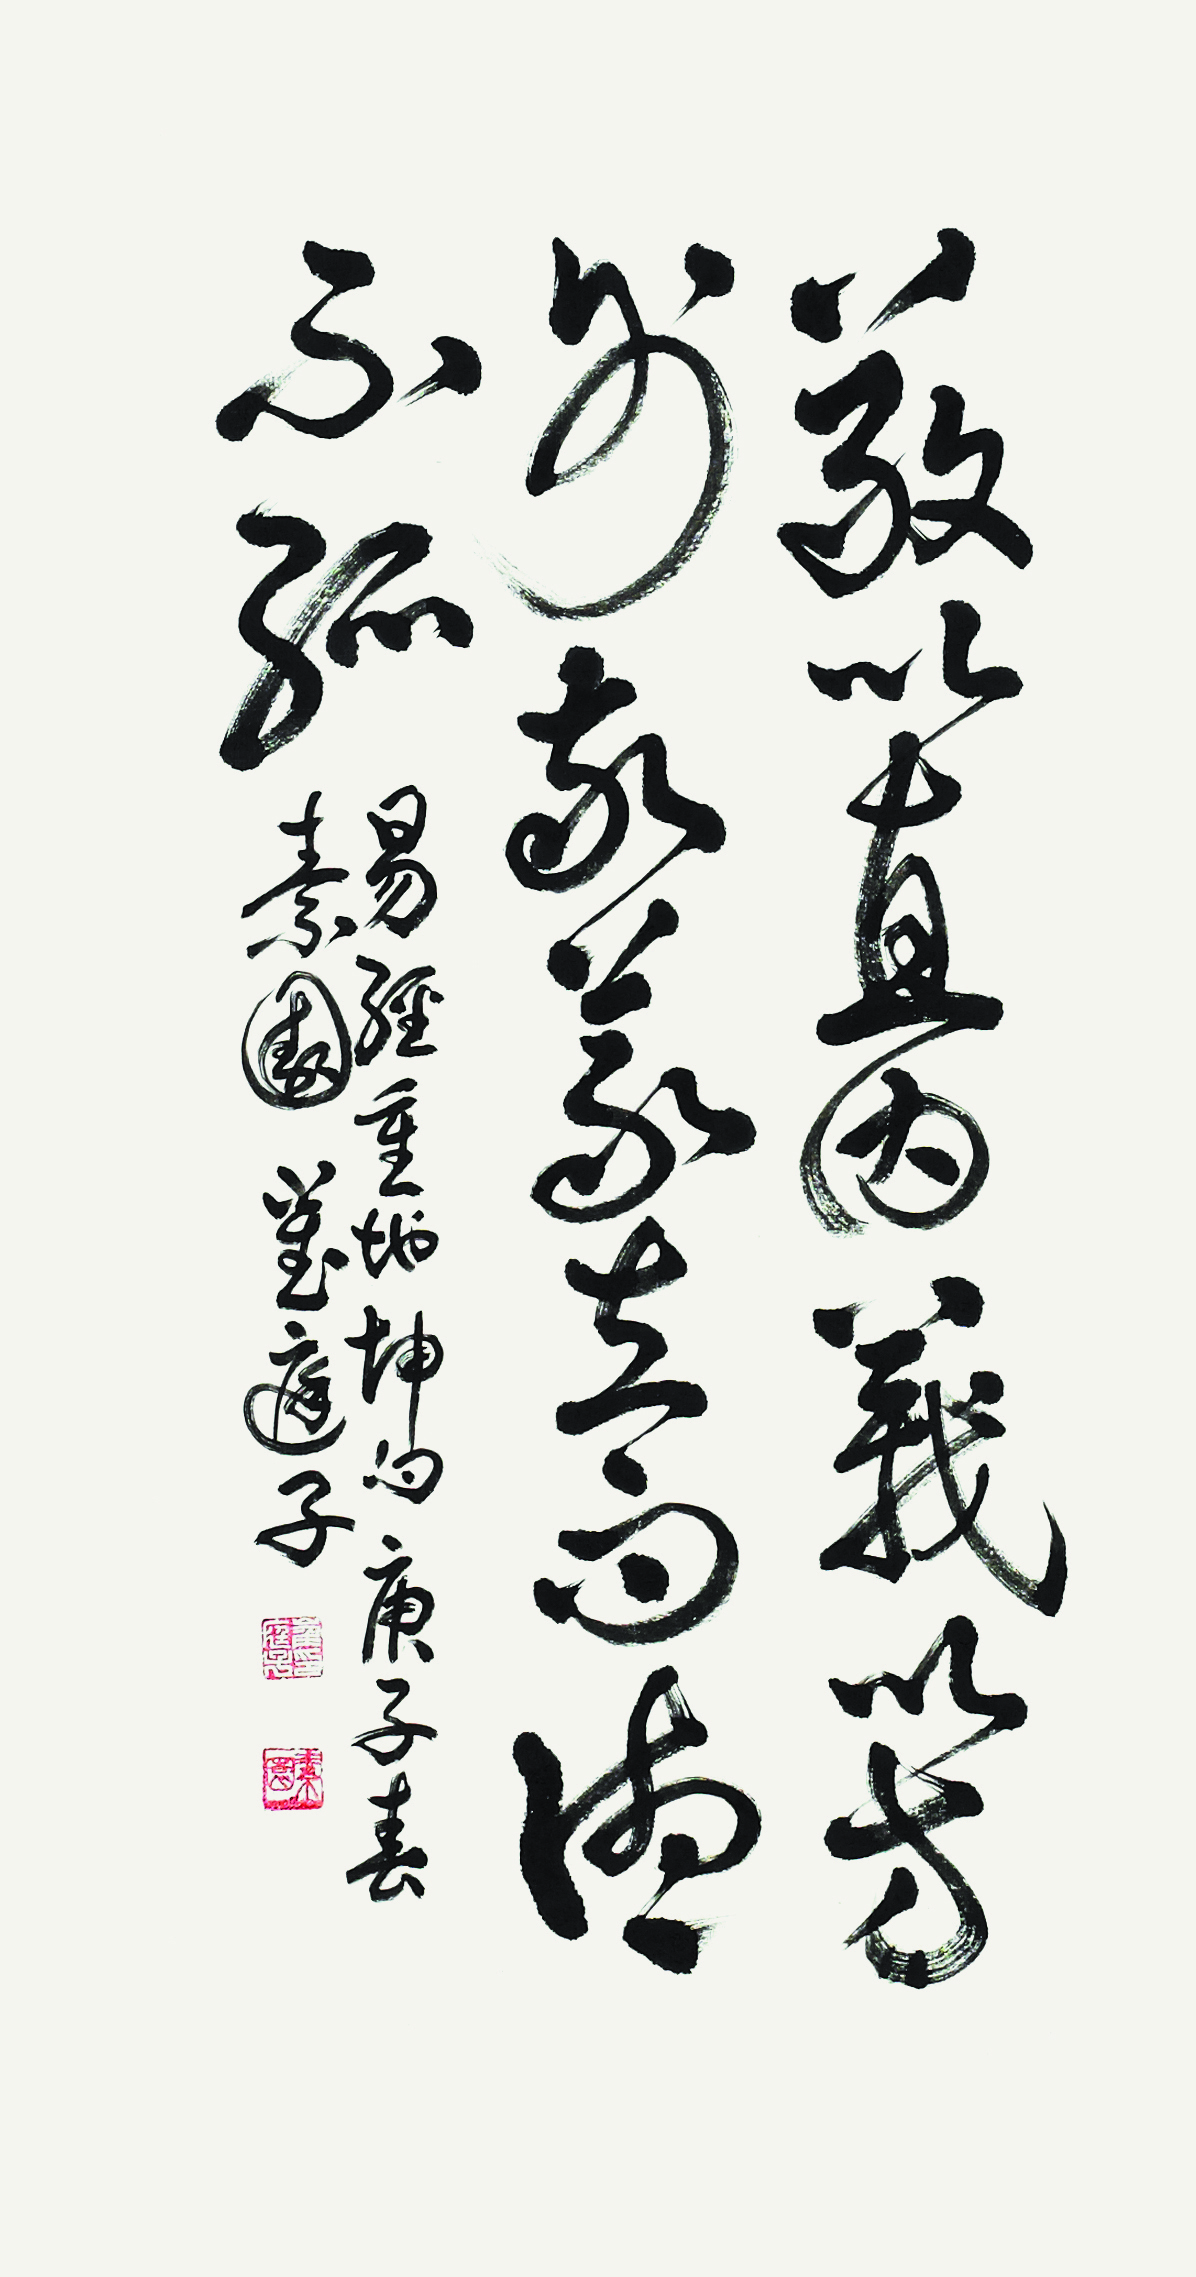 敬以直內義以方
外敬義立而德
不孤
易經重地坤句 庚子春
素園 崔庭子
素園